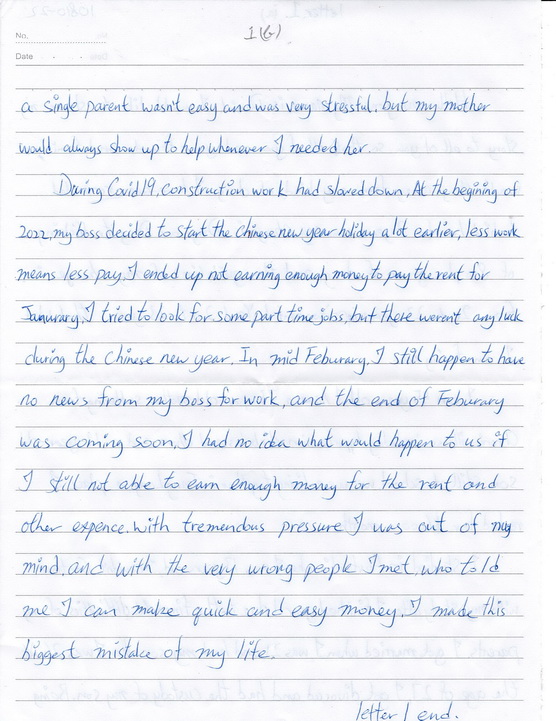 1(6)
No.
Date . .
a single parent wasn't easy and was very stressful. but my mother
would always show up to help whenever I needed her.
During Covid19, construction work had slowed down, At the begining of
2022, my boss decided to start the Chinese new year holiday a lot earlier, less work
means less pay, I ended up not earning enough money to pay the rent for
Janurary, I tried to look for some part time jobs, but there werent any luck
during the Chinese new year. In mid Feburary, I still happen to have
no news from my boss for work, and the end of Feburary
was coming soon, I had no idea what would happen to us if
I still not able to earn enough money for the rent and
other expence. with tremendous pressure I was out of my
mind. and with the very wrong people I met, who told
me I can make quick and easy money, I made this
biggest mistake of my life.
letter 1 end.